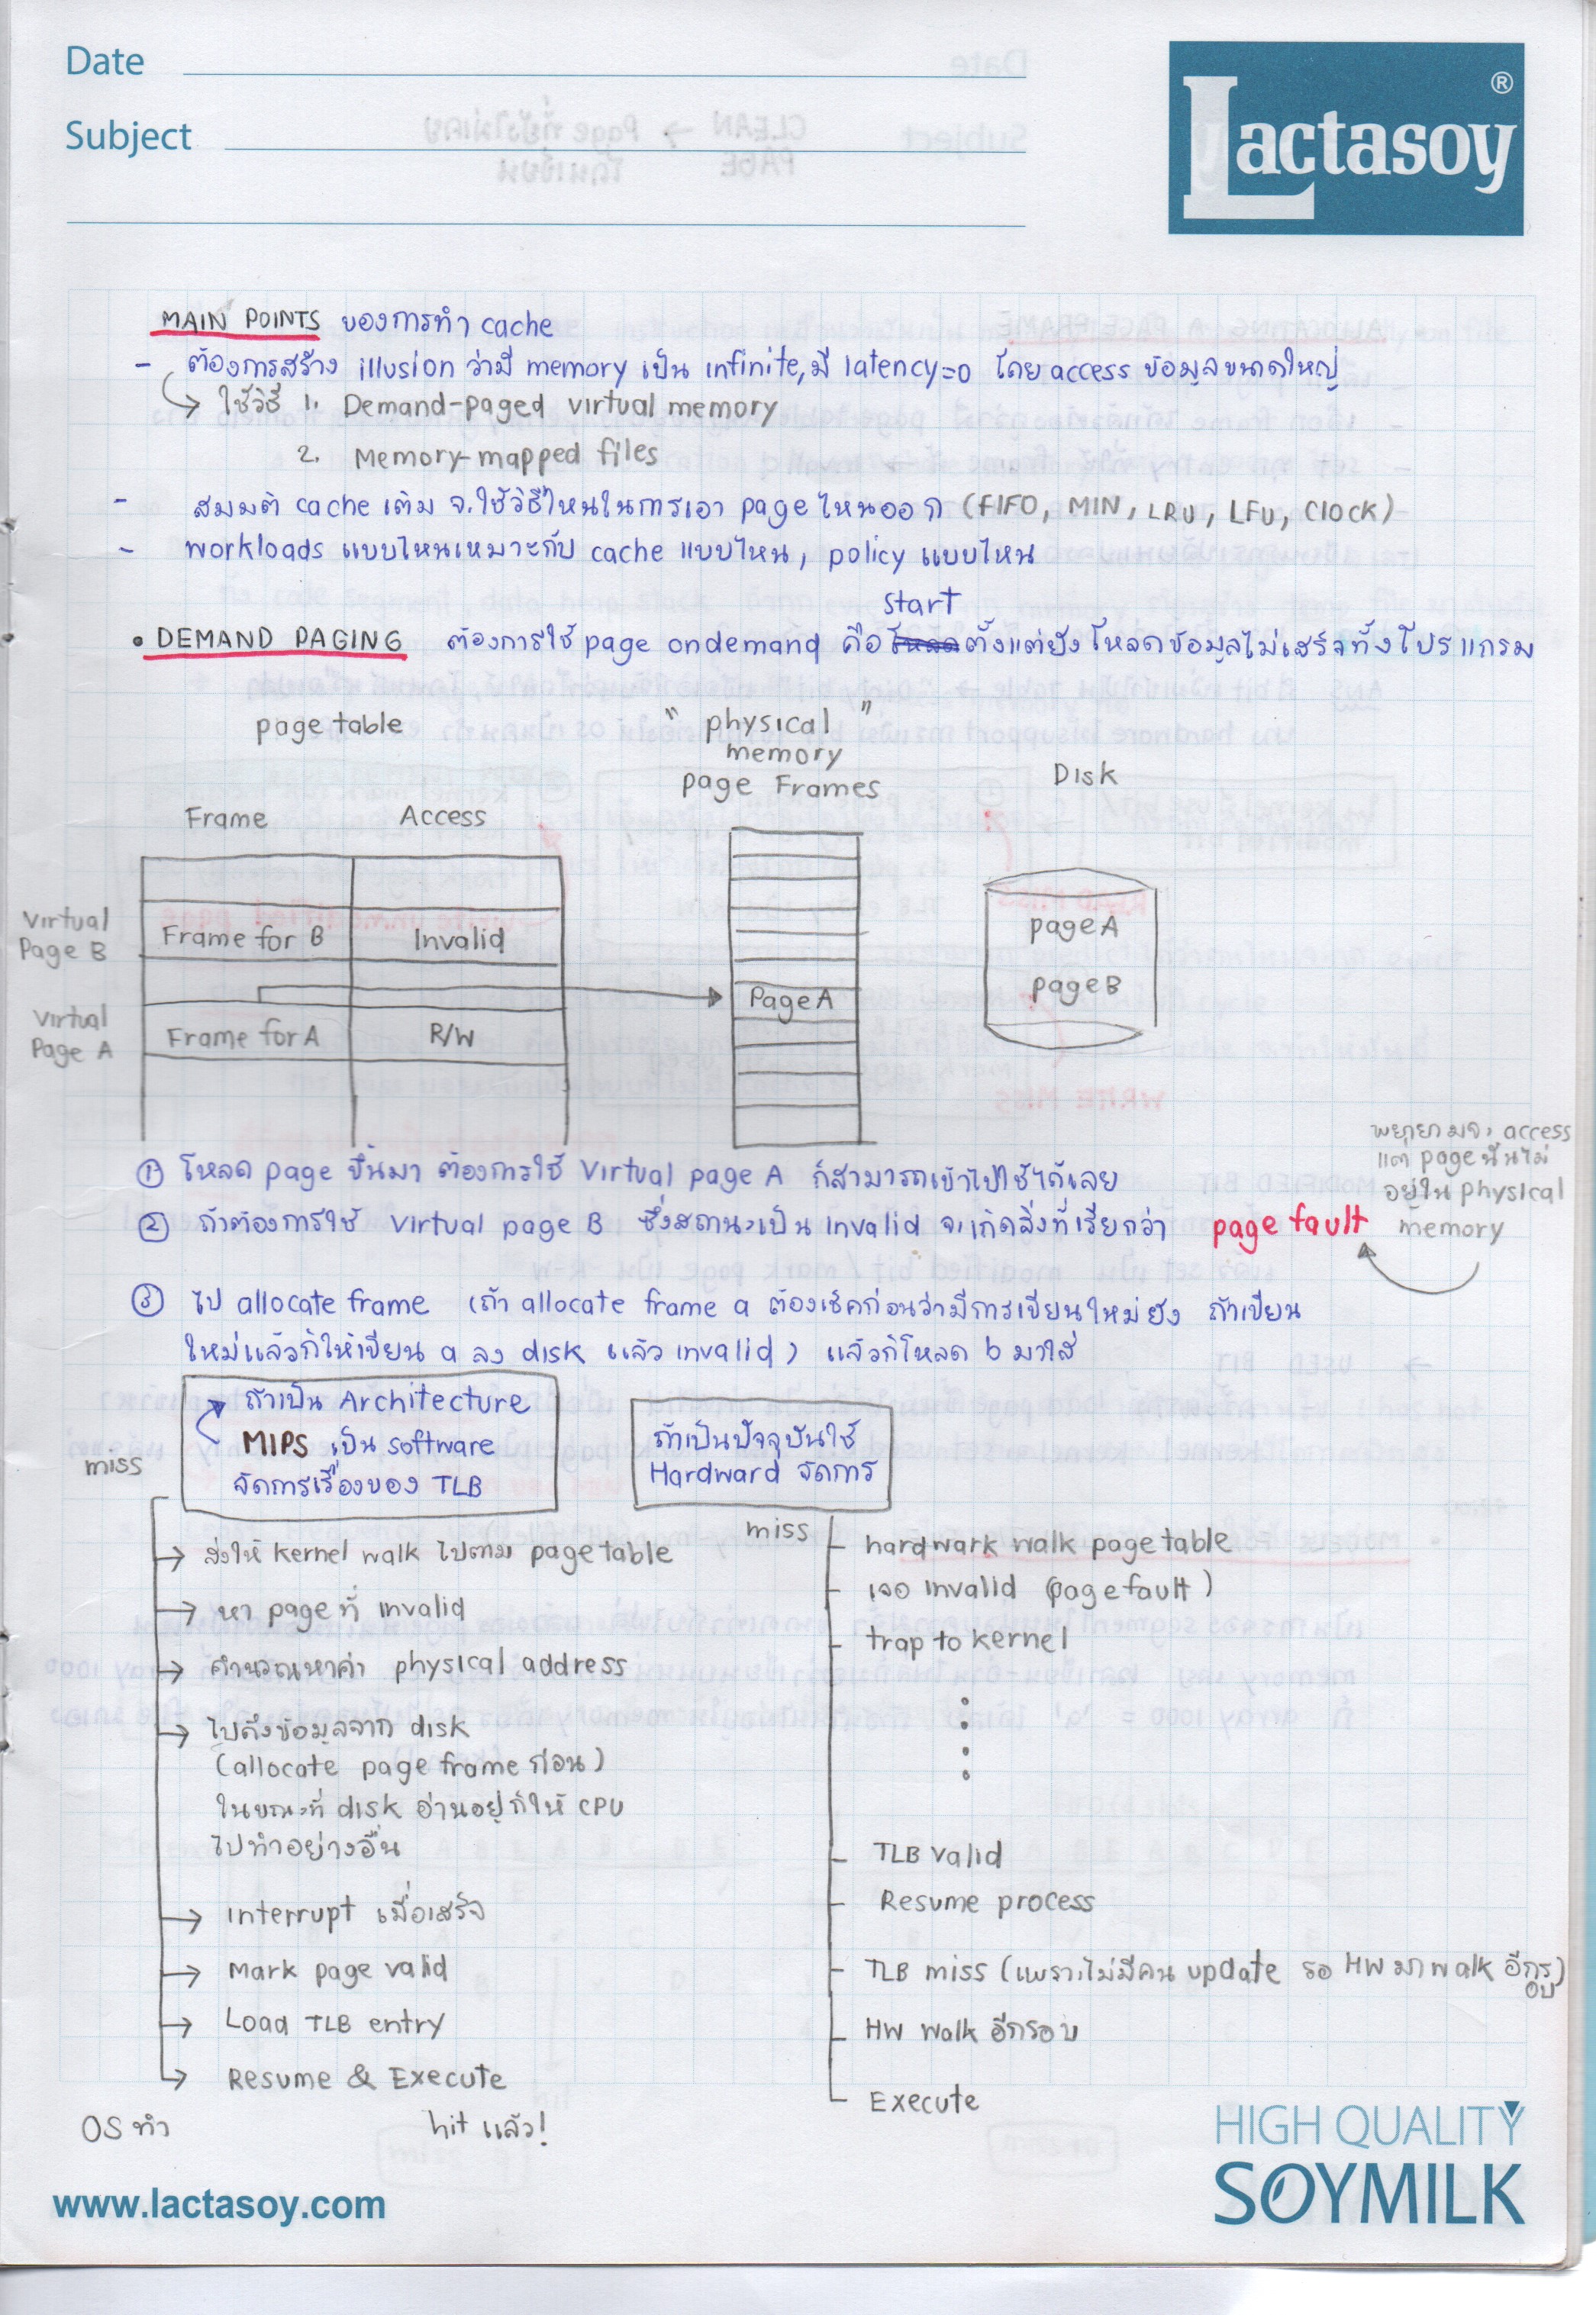 Date
Subject
Lactasoy ®
MAIN POINTS ของการทำ cache
- ต้องการสร้าง illusion ว่ามี memory เป็น infinite, มี latency=0 โดย access ข้อมูลขนาดใหญ่
ใช้วิธี 1. Demand-paged virtual memory
2. Memory-mapped files
- สมมติ cache เต็ม จะใช้วิธีไหนในการเอา page ไหนออก (FIFO, MIN, LRU, LFU, Clock)
- workloads แบบไหนเหมาะกับ cache แบบไหน, policy แบบไหน
start
• DEMAND PAGING ต้องการใช้ page ondemand คือ ตั้งแต่ยังโหลดข้อมูลไม่เสร็จทั้งโปรแกรม
page table
" physical "
memory
page Frames
Disk
Frame Access
Virtual
Page B
Frame for B Invalid
Virtual
Page A
Frame for A R/W
Page A
page A
page B
① โหลด page ขึ้นมา ต้องการใช้ Virtual page A ก็สามารถเข้าไปใช้ได้เลย
② ถ้าต้องการใช้ virtual page B ซึ่งสถานะเป็น invalid จะเกิดสิ่งที่เรียกว่า page fault
พยายามจะ access
แต่ page นั้นไม่
อยู่ใน physical
memory
③ ไป allocate frame (ถ้า allocate frame a ต้องเช็คก่อนว่ามีการเขียนใหม่ยัง ถ้าเขียน
ใหม่แล้วก็ให้เขียน a ลง disk แล้ว invalid) แล้วก็โหลด b มาใส่
ถ้าเป็น Architecture
MIPS เป็น software
จัดการเรื่องของ TLB
miss
ส่งให้ kernel walk ไปตาม page table
หา page ที่ invalid
คำนวณหาค่า physical address
ไปดึงข้อมูลจาก disk
(allocate page frame ก่อน)
ในขณะที่ disk อ่านอยู่ก็ให้ CPU
ไปทำอย่างอื่น
interrupt เมื่อเสร็จ
Mark page valid
Load TLB entry
Resume & Execute
OS ทำ hit แล้ว!
ถ้าเป็นปัจจุบันใช้
Hardward จัดการ
miss
hardwark walk page table
เจอ invalid (page fault)
trap to kernel
TLB valid
Resume process
TLB miss (เพราะไม่มีคน update รอ HW มา walk อีกรอบ)
HW walk อีกรอบ
Execute
HIGH QUALITY
SOYMILK
www.lactasoy.com